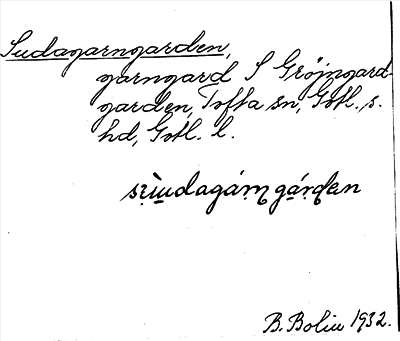 Sudagarngarden,
garngard S Gröjngard-
garden, Tofta sn, Gotl. s.
hd, Gotl. l.
sùudagáṛṇgáṛḍen
B. Bolin 1932.